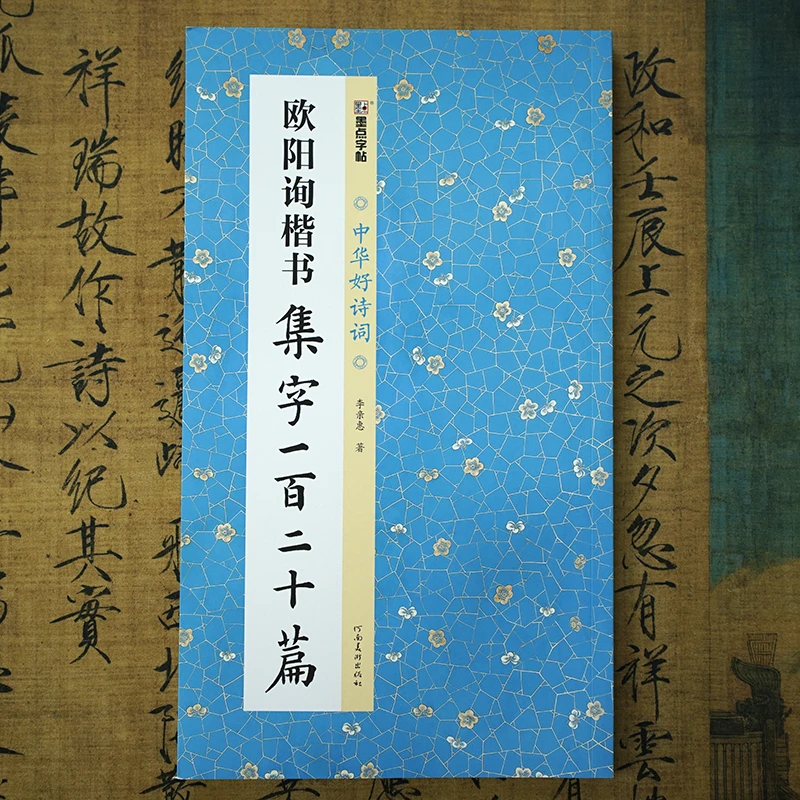 政和壬辰上元之次夕忽有祥雲
河南美术出版社
墨点字帖
中华好诗词
李亲惠 著
欧阳询楷书 集字一百二十篇
祥瑞故作詩以紀其實